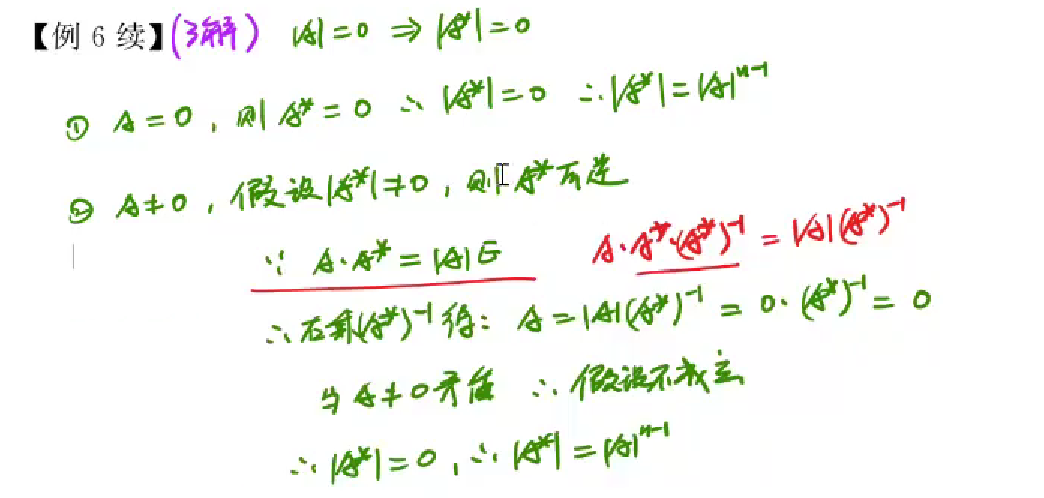 【例 6 续】(3解) |A|=0 ⇒ |A*|=0
① A=0，则 A*=0 ∴ |A*|=0 ∴|A*|=|A|ⁿ⁻¹
② A≠0，假设|A*|≠0，则 A*可逆
∵ A·A*=|A|E A·A*·(A*)⁻¹=|A|(A*)⁻¹
∴右乘(A*)⁻¹得：A=|A|(A*)⁻¹=0·(A*)⁻¹=0
与A≠0矛盾 ∴假设不成立
∴|A*|=0，∴|A*|=|A|ⁿ⁻¹